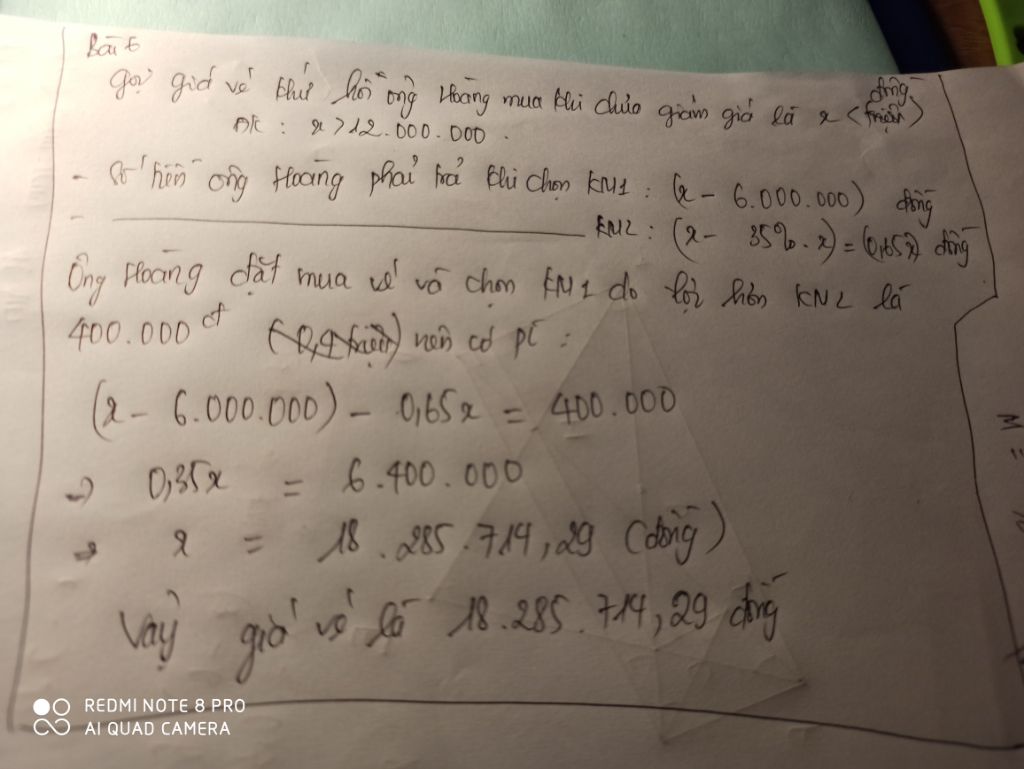 Bài 6
Gọi giá vé khứ hồi ông Hoàng mua khi chưa giảm giá là x (triệu) đồng
ĐK : x > 12.000.000.
- Số tiền ông Hoàng phải trả khi chọn KM1 : (x - 6.000.000) đồng
- ———— KM2 : (x - 35%.x) = (0,65x) đồng
Ông Hoàng đặt mua vé và chọn KM1 do lợi hơn KM2 là
400.000đ (0,4 triệu) nên có pt :
(x - 6.000.000) - 0,65x = 400.000
→ 0,35x = 6.400.000
→ x = 18.285.714,29 (đồng)
Vậy giá vé là 18.285.714,29 đồng
REDMI NOTE 8 PRO
AI QUAD CAMERA